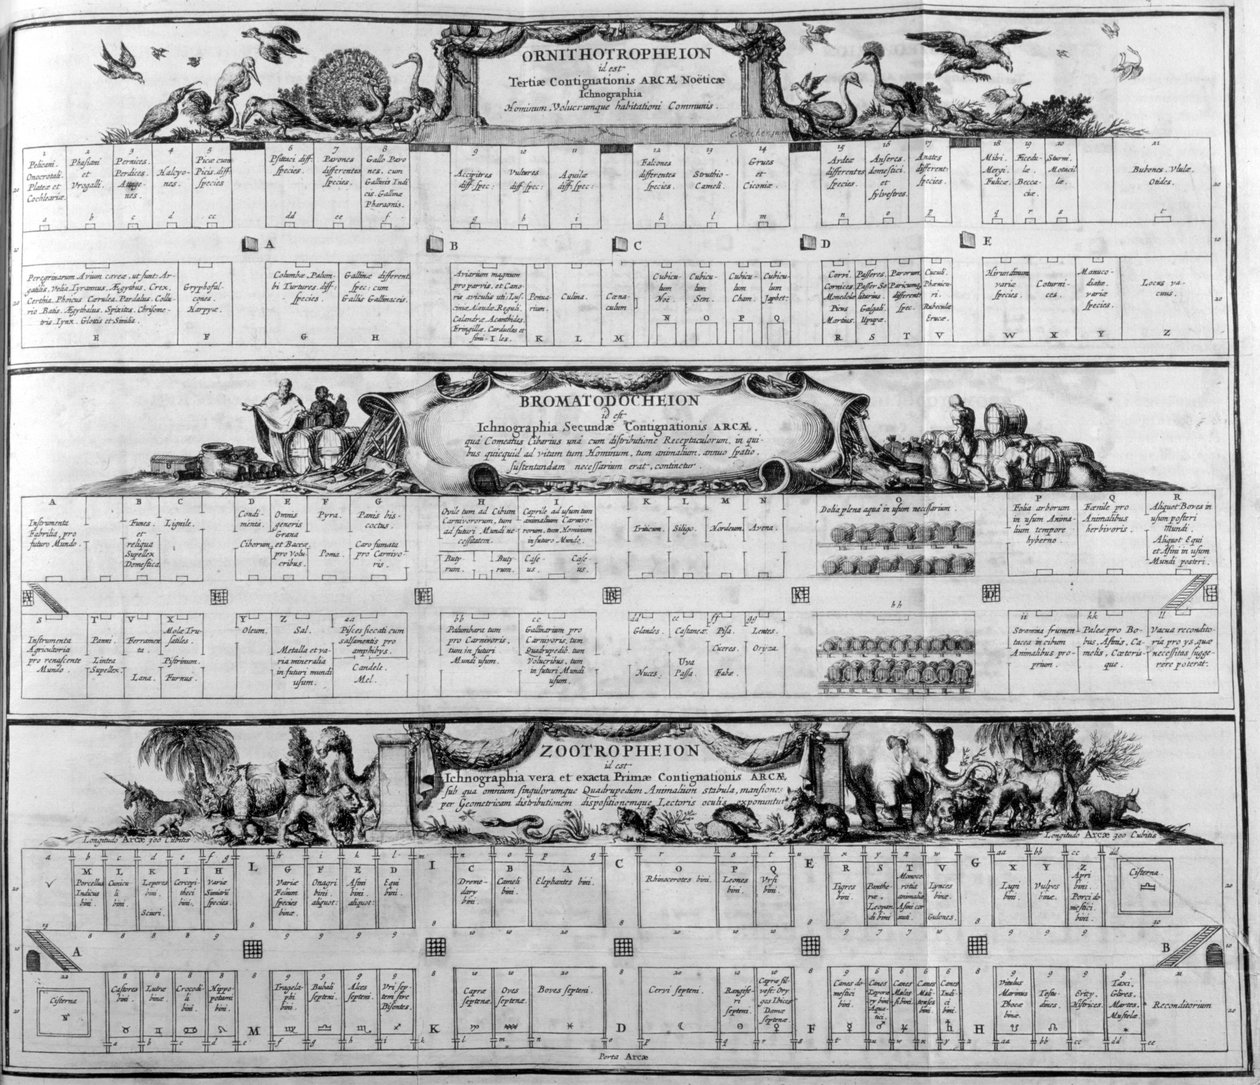 ORNITHOTROPHEION
id est
Tertiæ Contignationis ARCÆ Noëticæ
Ichnographia
Hominum, Volucrumque habitationi Communis.
1 2 3 4 5 6 7 8 9 10 11 12 13 14 15 16 17 18 19 20 21
Pelicani.
Onocrotali.
Plateæ et
Cochleariæ.
Phasiani
et
Vrogalli.
Pernices.
Perdices.
nes.
Halcyo-
nes.
Picæ cum
Picis. diff.
species
Psittaci diff.
species.
Pavones
differentes
species.
Gallo Pavo
nes, cum
Gallinis Indi
cis. Gallinæ
Pharaonis.
Accipitres
diff. spec:
Vultures
diff. spec:
Aquilæ
diff. spec:
Falcones
differentes
species.
Struthio-
Cameli.
Grues
et
Ciconiæ.
Ardeæ
differentes
species.
Anseres
domestici
et
sylvestres.
Anates
different:
species.
Milvi.
Mergi.
Fulicæ.
Ficedu-
læ.
Becca-
ciæ.
Sturni.
Motacil
læ.
Bubones. Vlulæ.
Otides.
a b c d cc dd ee f g h i k l m n o p q r s t
A B C D E
Peregrinarum Avium caveæ, ut sunt: Ar-
gatilis, Velia, Tyrannus, Ægythus, Crex,
Certhia, Phoicus, Cærulea, Pardalus, Collu
rio, Batis, Ægythalus, Spixitta, Chrisome-
tris, Lynx, Glotis et Similia.
E
Gryphofal-
cones.
Harpyæ.
F
Columbæ, Palum-
bi Turtures diff:
species.
G
Gallinæ different:
spec: cum
Gallis Gallinaceis.
H
Aviarium magnum
pro parvis, et Cano-
ris aviculis uti; Lus-
ciniæ, Alaudæ, Reguli.
Calandræ. Acanthides
Fringillæ. Cardueles et
simi- I les.
Penua-
rium.
K
Culina.
L
Cœna-
culum
M
Cubicu-
lum
Noë.
N
Cubicu-
lum
Sem.
O
Cubicu-
lum
Cham.
P
Cubicu-
lum
Japhet:
Q
Corvi.
Cornices.
Monedulæ
Picus
Martius.
R
Passeres.
Passer So-
litarius
Galguli
Upupæ.
S
Parorum
Paricum
different:
spec.
T
Cuculi.
Phœnicu-
ri.
Rubeculæ
Erucæ.
V
Hirundinum
variæ
species.
W
Coturni-
ces.
X
Manuco-
diatæ.
variæ
species.
Y
Locus va-
cuus.
Z
BROMATODOCHEION
id est
Ichnographia Secundæ Contignationis ARCÆ,
quâ Comeatus Cibarius unà cum distributione Receptaculorum, in qui-
bus quicquid ad vitam tum Hominum, tum animalium, annuo spatio,
sustentandam necessarium erat, continetur.
A B C D E F G H I K L M N O P Q R
Instrumenta
Fabrilia, pro
futuro Mundo.
Funes.
et
reliqua
Supellex
Domestica
Lignile.
Condi-
menta.
Ciborum.
Omnis
generis
Grana
et Baccæ
pro Volu
cribus.
Pyra.
Poma.
Panis bis-
coctus.
Caro fumata
pro Carnivo-
ris.
Ovile tum ad Cibum
Carnivororum, tum
ad futuri Mundi ne-
cessitatem.
Buty-
rum.
Buty-
rum.
Caprile ad usum tum
animalium Carnivo-
rorum, tum Hominum
in futuro Mundo.
Case-
us.
Case-
us.
Triticum.
Siligo.
Hordeum.
Avena.
Dolia plena aquâ in usum necessarium
Folia arborum
in usum Anima-
lium tempore
hyberno.
Fœnile pro
Animalibus
herbivoris.
Aliquot Boves in
usum posteri
Mundi.
Aliquot Equi
et Asini in usum
Mundi posteri.
S T V X Y Z aa bb cc dd ee ff gg hh ii kk ll
Instrumenta
Agricultoria
pro renascente
Mundo.
Panni.
Lintea
Supellex.
Ferramen-
ta.
Lana.
Molæ Tru-
satiles.
Pistrinum.
Furnus.
Oleum.
Sal.
Metalla et va-
ria mineralia
in futuri mundi
usum.
Pisces siccati cum
salsamentis pro
amphybys.
Candele.
Mel.
Palumbara tum
pro Carnivoris,
tum in futuri
Mundi usum.
Gallinarium pro
Carnivoris, tum
Quadrupedib. tum
Volucribus, tum
in futuri Mundi
usum.
Glandes.
Nuces.
Castaneæ.
Uva
Passa.
Pisa.
Ciceres.
Fabæ.
Lentes.
Oryza.
Stramina frumen-
tacea in cibum
Animalibus pro-
prium.
Paleæ pro Bo-
bus, Asinis, Ca-
melis, Cæteris-
que.
Vacua recondito-
ria pro ys quæ
necessitas sugge-
rere poterat.
ZOOTROPHEION
id est
Ichnographia vera et exacta Primæ Contignationis ARCÆ,
sub qua omnium singulorumque Quadrupedum Animalium stabula, mansiones
per Geometricam distributionem dispositionemque Lectoris oculis exponuntur
Longitudo Arcæ 300 Cubitis
Longitudo Arcæ 300 Cubitis
M L K I H L G F E D I C B A C O P Q E R S T V G X Y Z
Porcellus
Indicus
bini
Cunicu
li
bini.
Lepores
bini.
Sciuri.
Cercopi
theci
bini.
Variæ
Simiarū
species.
Variæ
Felium
species
binæ.
Onagri
bini
aliquot.
Asini
bini
aliquot:
Equi
bini.
Drome-
dary
bini.
Cameli
bini.
Elephantes bini.
Rhinocerotes bini.
Leones
bini.
Vrsi
bini.
Tigres
bini.
Panthe-
ræ.
Leopar-
di bini
Monoce-
rotia
animalia
Asini cor
nuti
Lynces
binæ.
Gulones.
Lupi
bini.
Vulpes
binæ.
Apri
bini.
Porci do-
mestici
bini.
Cisterna.
A B
Cisterna
Castores
bini.
Lutræ
binæ.
Crocodi-
li
bini.
Hippo-
potami
bini.
M
Tragela-
phi
bini.
Bubali
septeni.
Alces
septeni.
Vri sep-
tem sive
Bisontes
K
Capræ
septenæ.
Oves
septenæ.
Boves septeni.
D
Cervi septeni.
Rangife-
ri
septeni.
Capræ sil-
vest: Ory-
ges Ibices
Damæ
septenæ
F
Canes do-
mestici
bini.
Canes
Aqua-
tici.
Canes
Canes
bini.
Canes
Indi-
ci
bini.
H
Vitulus
Marinus
Phocæ
binæ.
Testu-
dines.
Ericy.
Histrices.
Taxi,
Glires.
Martes.
Mustelæ
Reconditorium
Porta Arcæ